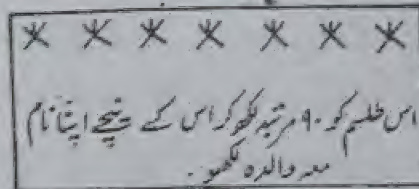 اس طلسم کو ۹۰ مرتبہ لکھ کر اس کے نیچے اپنا نام
معہ والدہ لکھو۔